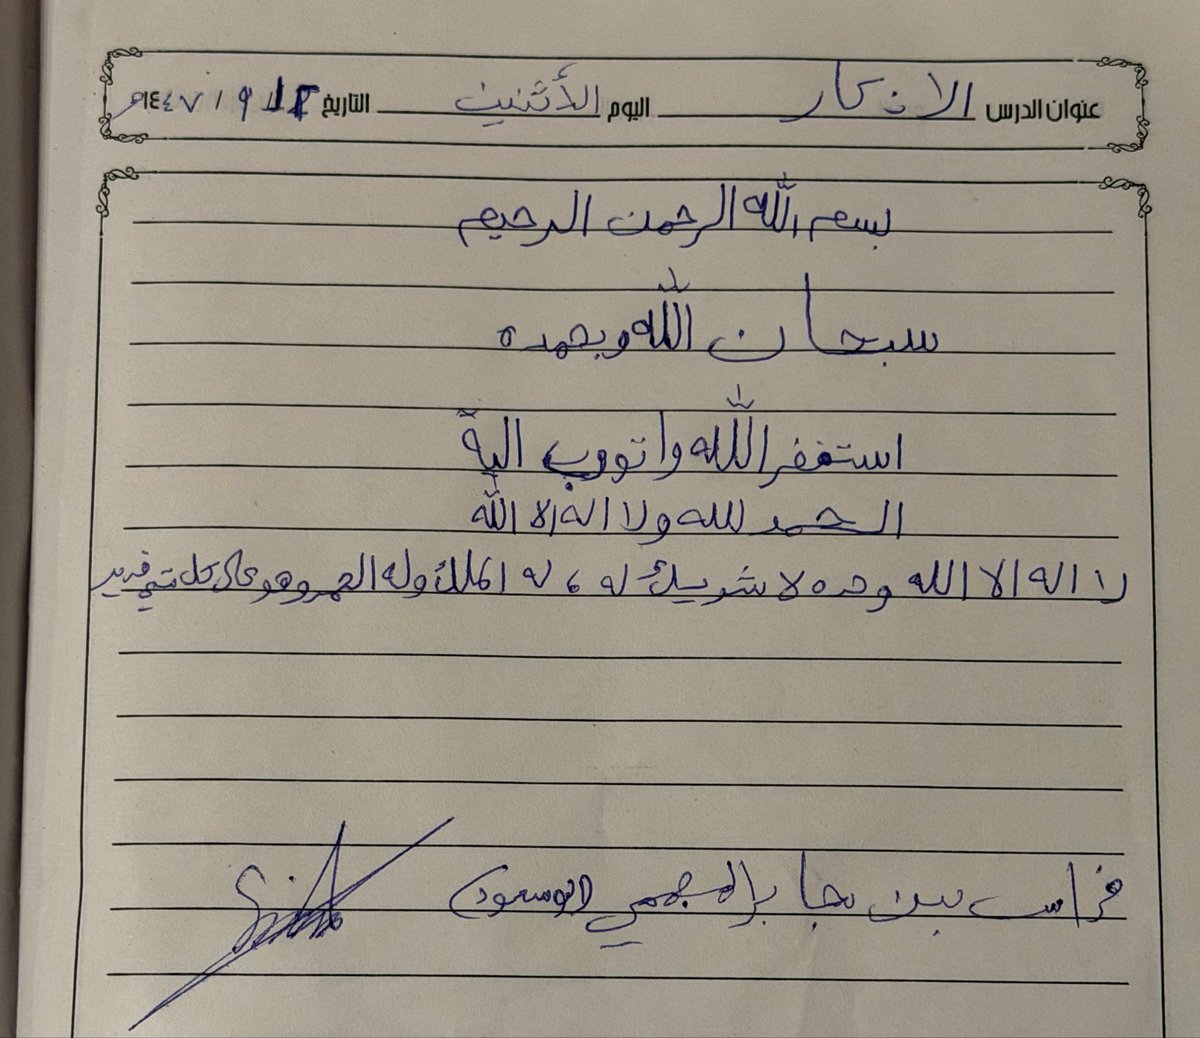 عنوان الدرس الاذكار اليوم الأثنين التاريخ / ٩ / ١٤٤٧هـ
بسم الله الرحمن الرحيم
سبحان الله وبحمده
استغفر الله واتووب الية
الحمد لله ولا اله الا الله
لا اله الا الله وحده لا شريك له ، له الملك وله الحمد وهو على كل شي قدير
فراس بن جابر (ابو سعود)